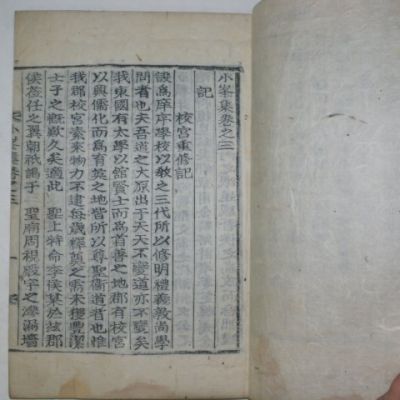 小峯集卷之三
記
校宮重修記
設爲庠序學校以敎之三代所以修明禮義敦尙學
問者也夫吾道之大原出于天天不變道亦不變矣
我東國有太學以館賢士而爲首善之地郡有校宮
以興儒化而爲育英之地皆所以尊聖衛道者也惟
我郡校宮奏來物力不逮每歲釋奠之需未穩豊潔
士子之慨歎久矣適此 聖上特命李侯某於玆郡
侯莅任之翼朝祇謁于 聖廟周視殿宇之滲漏墻